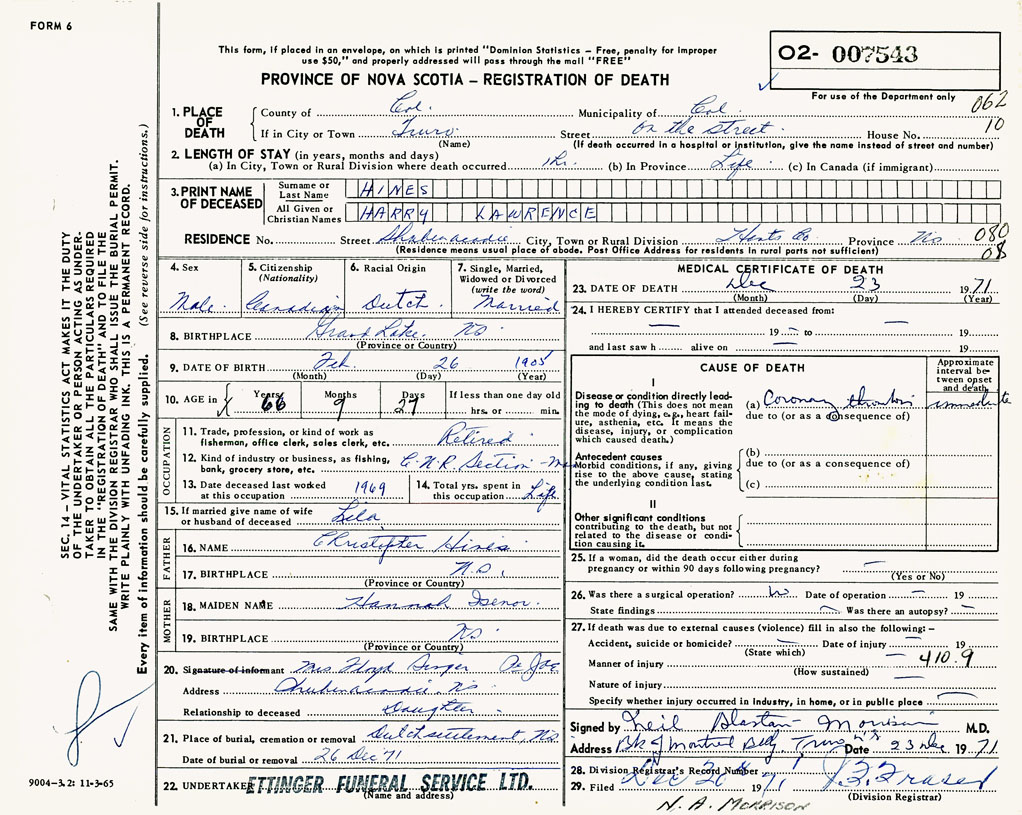 FORM 6
This form, if placed in an envelope, on which is printed "Dominion Statistics – Free, penalty for improper
use $50," and properly addressed will pass through the mail "FREE"
02- 007543
PROVINCE OF NOVA SCOTIA – REGISTRATION OF DEATH
For use of the Department only
062
10
1. PLACE OF DEATH
County of Col. Municipality of Col.
If in City or Town Truro. Street on the street. House No.
(Name) (If death occurred in a hospital or institution, give the name instead of street and number)
2. LENGTH OF STAY (in years, months and days)
(a) In City, Town or Rural Division where death occurred 1 hr. (b) In Province Life (c) In Canada (if immigrant)
3. PRINT NAME OF DECEASED
Surname or Last Name HINES
All Given or Christian Names HARRY LAWRENCE
RESIDENCE No. Street Shubenacadie City, Town or Rural Division Hants Co Province NS
080
08
(Residence means usual place of abode. Post Office Address for residents in rural parts not sufficient)
4. Sex Male
5. Citizenship (Nationality) Canadian
6. Racial Origin Dutch
7. Single, Married, Widowed or Divorced (write the word) Married
8. BIRTHPLACE Grand Lake. NS
(Province or Country)
9. DATE OF BIRTH Feb. 26 1905
(Month) (Day) (Year)
10. AGE in Years 66 Months 9 Days 27 If less than one day old hrs. or min.
OCCUPATION
11. Trade, profession, or kind of work as fisherman, office clerk, sales clerk, etc. Retired
12. Kind of industry or business, as fishing, bank, grocery store, etc. C.N.R. Section-Man
13. Date deceased last worked at this occupation 1969
14. Total yrs. spent in this occupation Life
15. If married give name of wife or husband of deceased Lila
FATHER
16. NAME Christopher Hines
17. BIRTHPLACE N.S.
(Province or Country)
MOTHER
18. MAIDEN NAME Hannah Isenor.
19. BIRTHPLACE NS.
(Province or Country)
20. Signature of informant Mrs Floyd
Address Shubenacadie. NS
Relationship to deceased Daughter
21. Place of burial, cremation or removal Dutch settlement, NS
Date of burial or removal 26 Dec '71
22. UNDERTAKER ETTINGER FUNERAL SERVICE LTD.
(Name and address)
MEDICAL CERTIFICATE OF DEATH
23. DATE OF DEATH Dec 23 1971
(Month) (Day) (Year)
24. I HEREBY CERTIFY that I attended deceased from:
— 19 — to — 19
and last saw h alive on — 19
CAUSE OF DEATH
Approximate interval between onset and death
I
Disease or condition directly leading to death (This does not mean the mode of dying, e.g., heart failure, asthenia, etc. It means the disease, injury, or complication which caused death.)
(a) Coronary thrombosis immediate
due to (or as a consequence of)
Antecedent causes
Morbid conditions, if any, giving rise to the above cause, stating the underlying condition last.
(b)
due to (or as a consequence of)
(c)
II
Other significant conditions
contributing to the death, but not related to the disease or condition causing it.
25. If a woman, did the death occur either during pregnancy or within 90 days following pregnancy? —
(Yes or No)
26. Was there a surgical operation? No Date of operation — 19
State findings Was there an autopsy? –
27. If death was due to external causes (violence) fill in also the following:–
Accident, suicide or homicide? — Date of injury — 19
(State which)
Manner of injury — 410.9
(How sustained)
Nature of injury —
Specify whether injury occurred in industry, in home, or in public place
Signed by Neil Alastair Morrison M.D.
Address Bk of Montreal Bldg Truro NS Date 23 Dec 1971
28. Division Registrar's Record Number
29. Filed Dec 26 1971 Fraser
(Division Registrar)
N. A. MORRISON
SEC. 14 – VITAL STATISTICS ACT MAKES IT THE DUTY
OF THE UNDERTAKER OR PERSON ACTING AS UNDER-
TAKER TO OBTAIN ALL THE PARTICULARS REQUIRED
IN THE "REGISTRATION OF DEATH" AND TO FILE THE
SAME WITH THE DIVISION REGISTRAR WHO SHALL ISSUE THE BURIAL PERMIT.
WRITE PLAINLY WITH UNFADING INK. THIS IS A PERMANENT RECORD.
Every item of information should be carefully supplied. (See reverse side for instructions.)
9004-3.2: 11-3-65